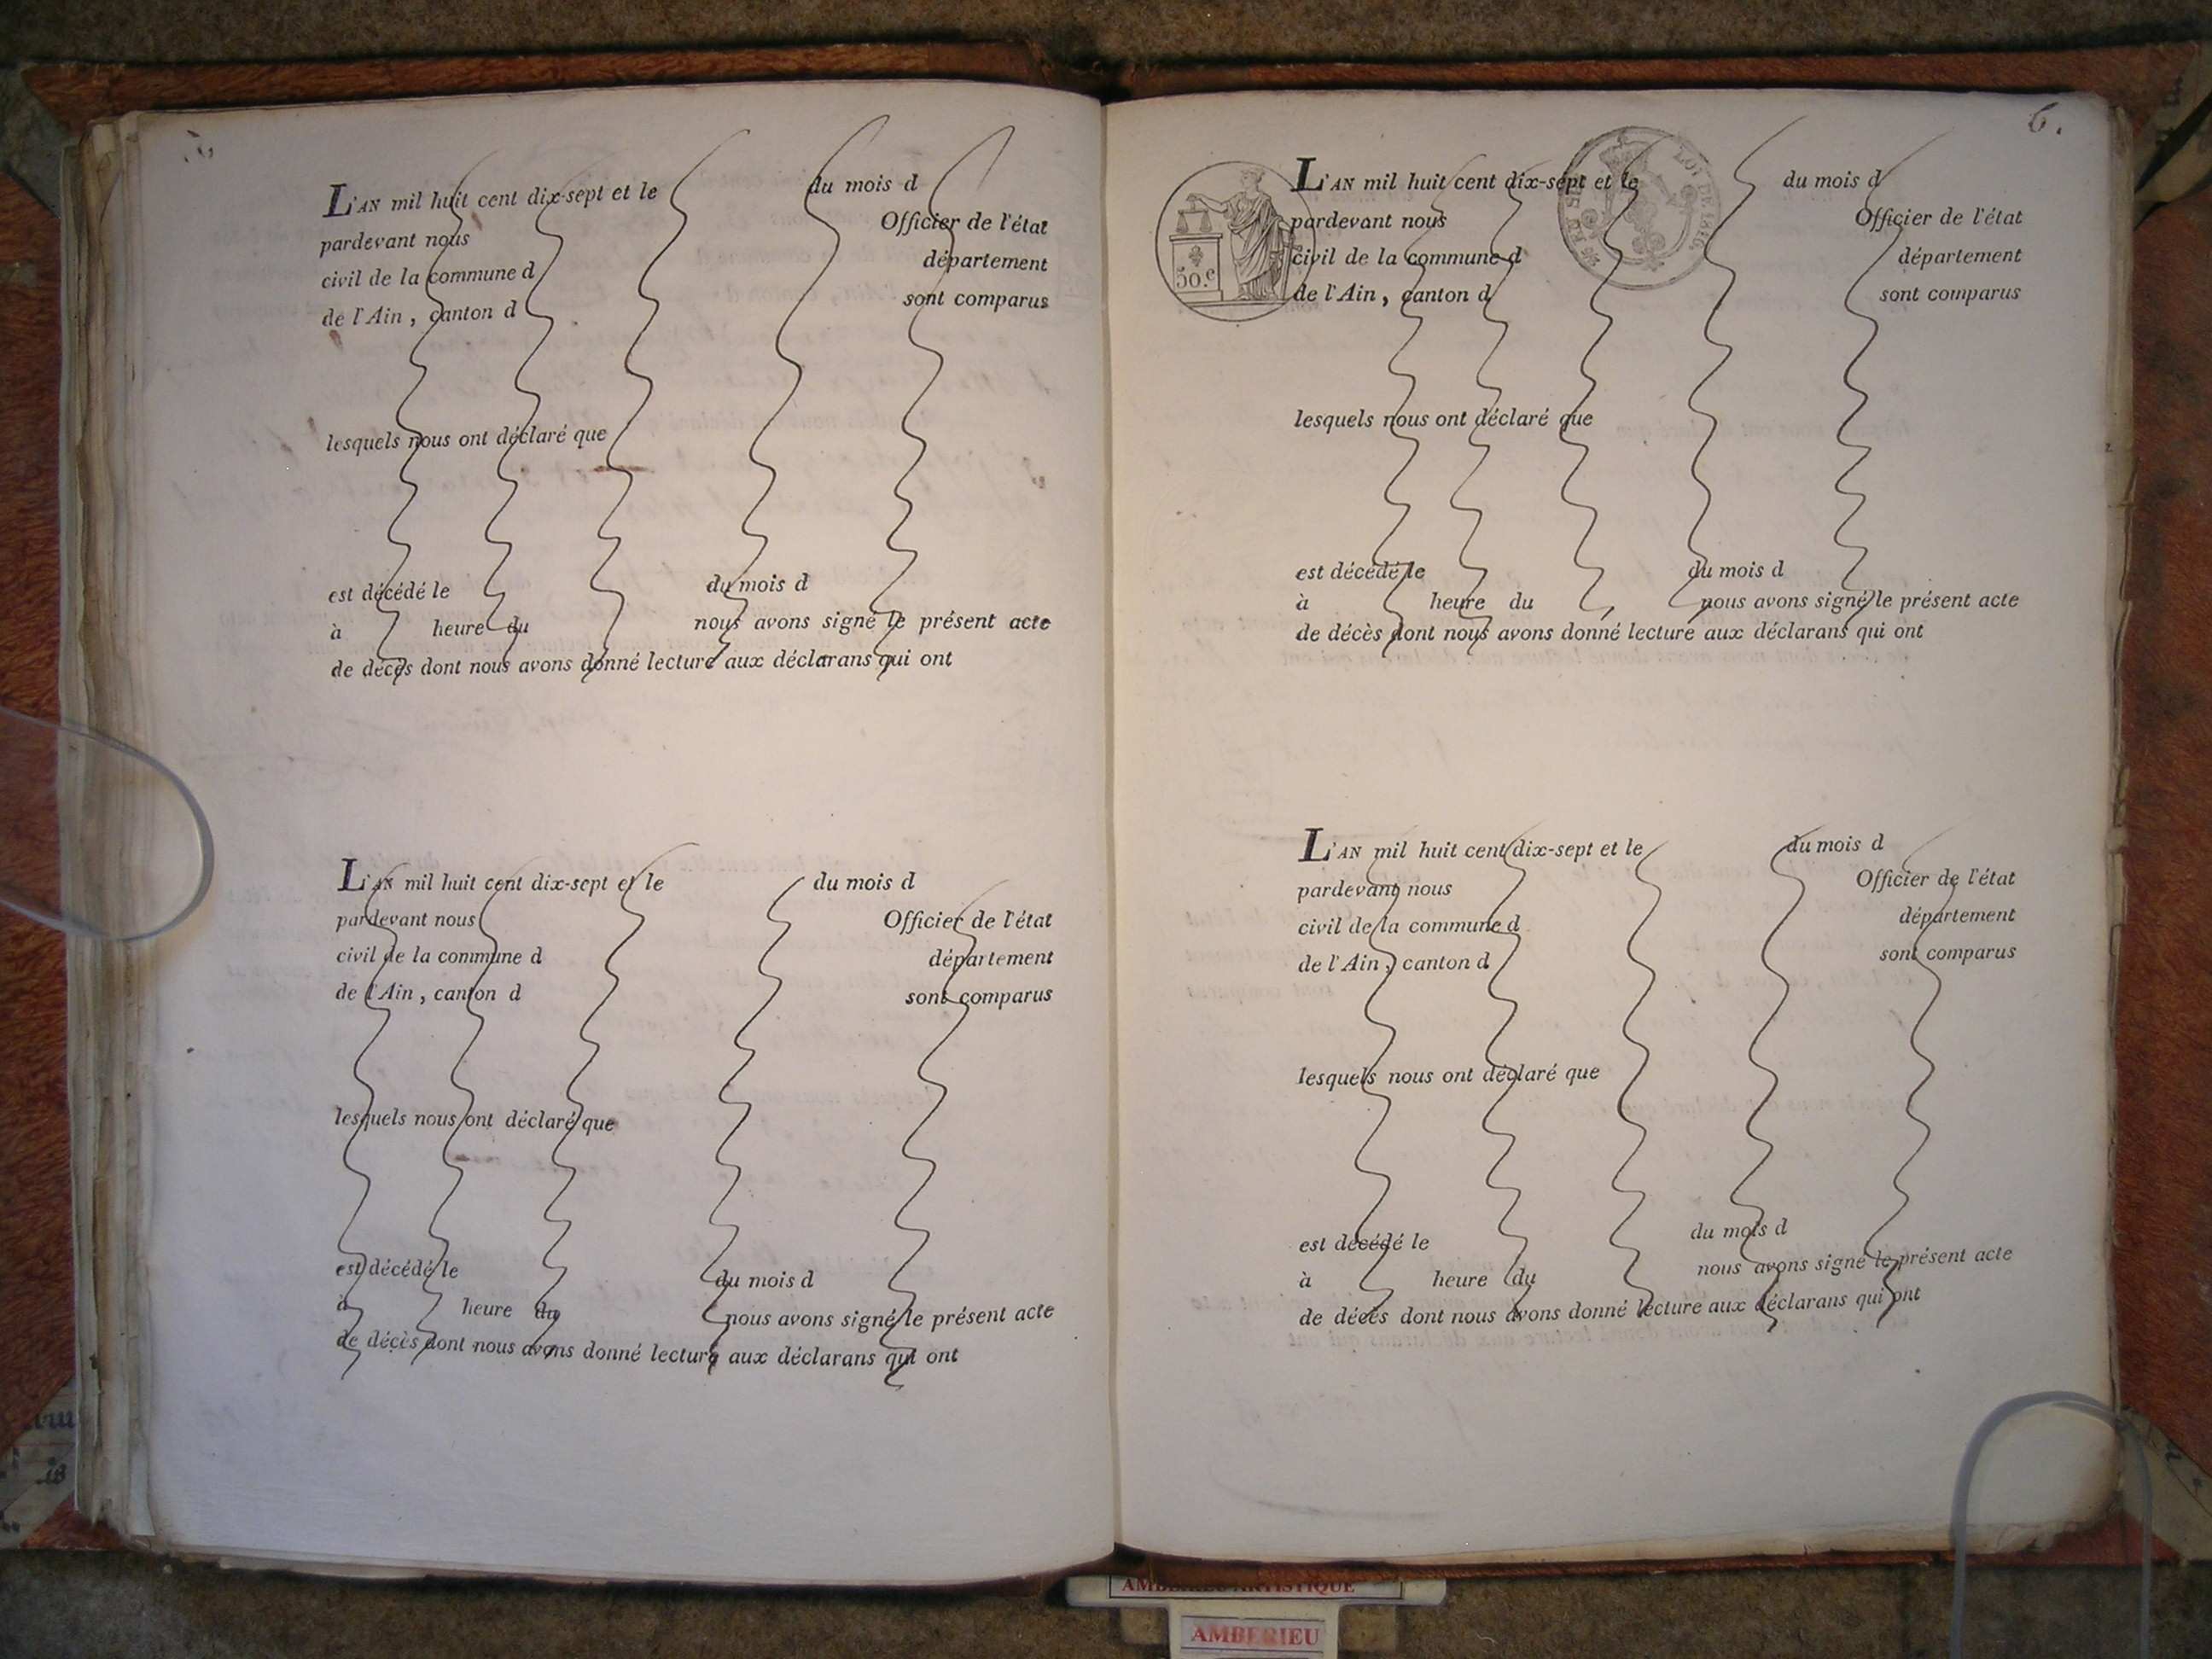 L'AN mil huit cent dix-sept et le du mois d
pardevant nous Officier de l'état
civil de la commune d département
de l'Ain , canton d sont comparus
lesquels nous ont déclaré que
est décédé le du mois d
à heure du nous avons signé le présent acte
de décès dont nous avons donné lecture aux déclarans qui ont
L'AN mil huit cent dix-sept et le du mois d
pardevant nous Officier de l'état
civil de la commune d département
de l'Ain , canton d sont comparus
lesquels nous ont déclaré que
est décédé le du mois d
à heure du nous avons signé le présent acte
de décès dont nous avons donné lecture aux déclarans qui ont
6.
50.c
LOI DE 1816
L'AN mil huit cent dix-sept et le du mois d
pardevant nous Officier de l'état
civil de la commune d département
de l'Ain , canton d sont comparus
lesquels nous ont déclaré que
est décédé le du mois d
à heure du nous avons signé le présent acte
de décès dont nous avons donné lecture aux déclarans qui ont
L'AN mil huit cent dix-sept et le du mois d
pardevant nous Officier de l'état
civil de la commune d département
de l'Ain , canton d sont comparus
lesquels nous ont déclaré que
est décédé le du mois d
à heure du nous avons signé le présent acte
de décès dont nous avons donné lecture aux déclarans qui ont
AMBERIEU ARTISTIQUE
AMBERIEU